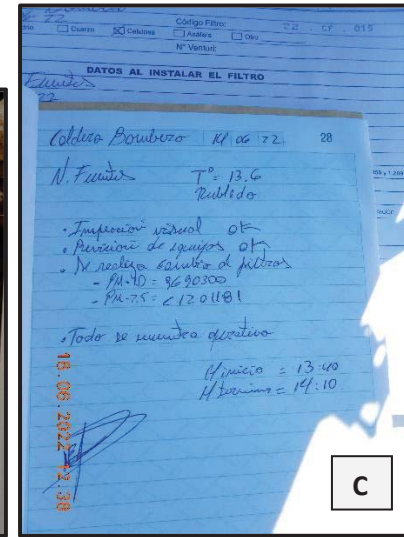 Código Filtro:
22 . CF . 015
Cuarzo
Celulosa
Análisis
Otro
N° Venturi:
DATOS AL INSTALAR EL FILTRO
Fuentes
22
Caldera Bombero 14 06 22 28
N. Fuentes T° = 13.6
Nublado
• Inspección visual ok
• Revisión de equipos ok
• Se realiza cambio de filtros
- PM-10 =
- PM-2.5 = C1201181
• Todo se encuentra operativo
H inicio = 13:40
H termino = 14:10
16.06.2022 12:38
C